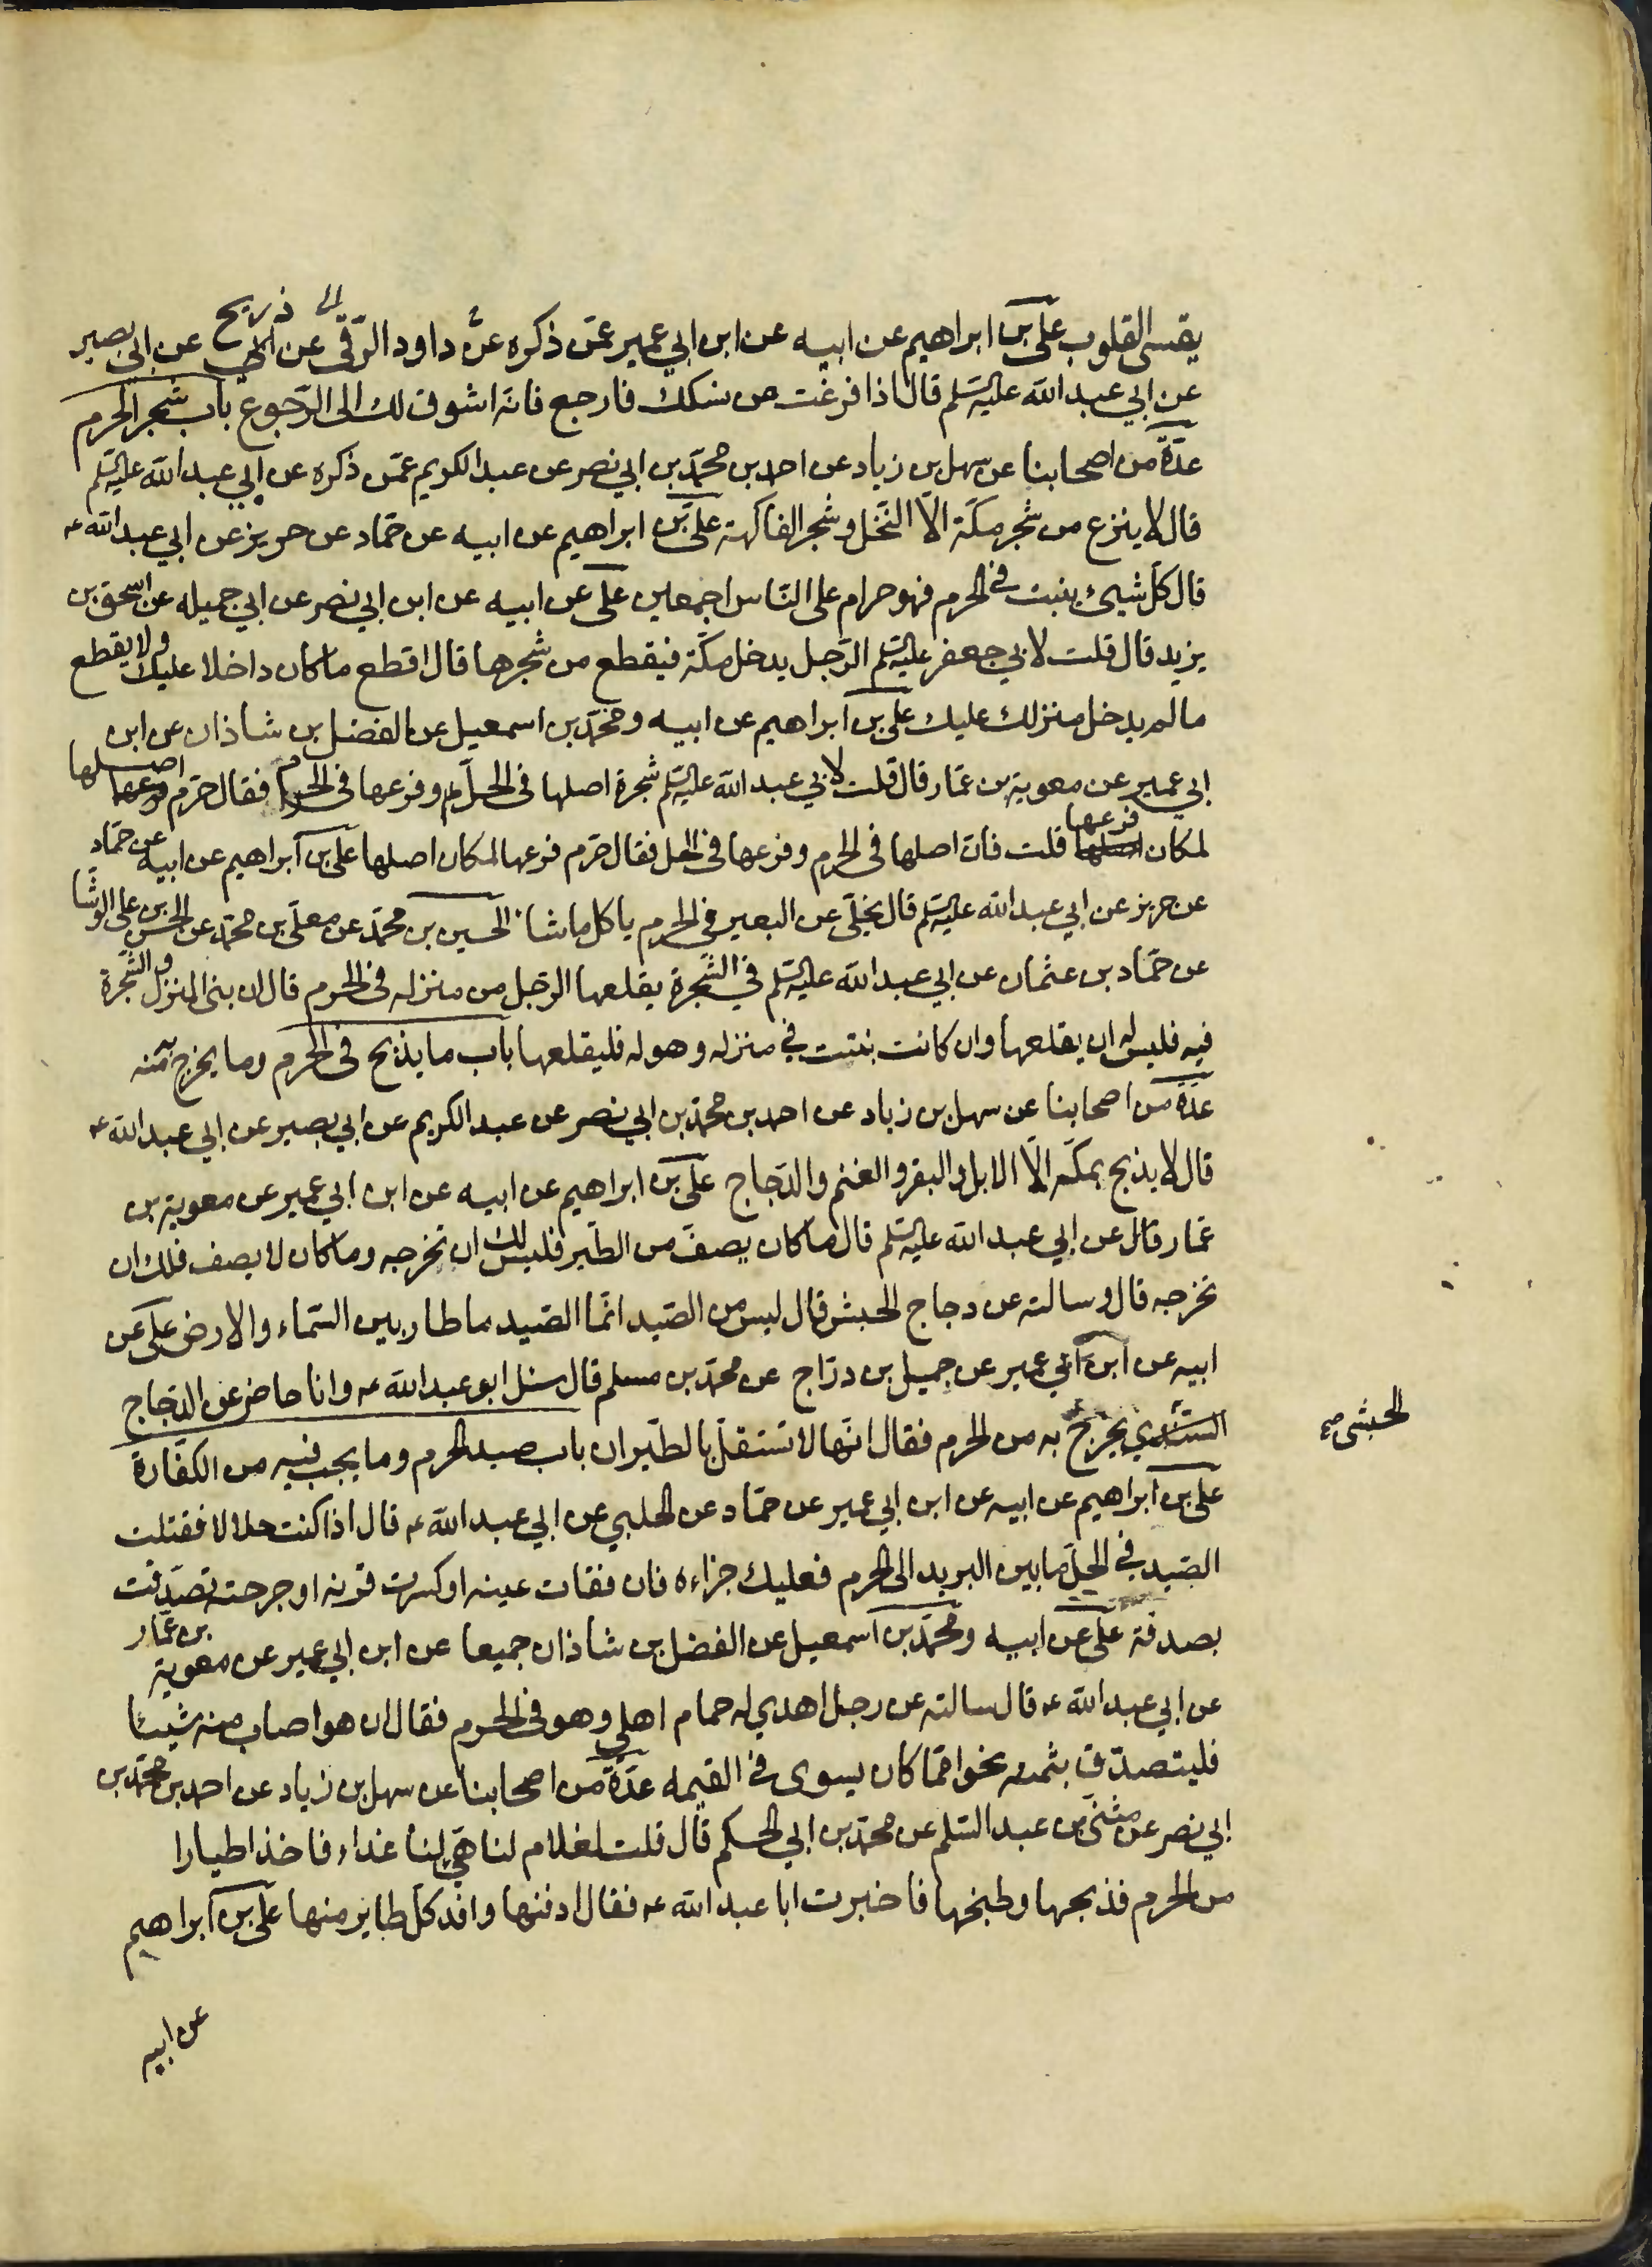 يقسى القلوب على بن ابراهيم عن ابيه عن ابن ابي عمير عمّن ذكره عن داود الرّقى عن ذريح عن ابى بصير
عن ابي عبد الله عليه السّلم قال اذا فرغت من نسكك فارجع فانّه اشوق لك الى الرّجوع باب شجر الحرم
عدّة من اصحابنا عن سهل بن زياد عن احمد بن محمّد بن ابي نصر عن عبد الكريم عمّن ذكره عن ابي عبد الله عليه السّلم
قال لا ينزع من شجر مكّة الاّ النّخل و شجر الفاكهة علىّ بن ابراهيم عن ابيه عن حمّاد عن حريز عن ابي عبد الله ع
قال كلّ شيئ ينبت في الحرم فهو حرام على النّاس اجمعين على عن ابيه عن ابن ابي نصر عن ابي جميله عن اسحق بن
يزيد قال قلت لابي جعفر عليه السّلم الرّجل يدخل مكّة فيقطع من شجرها قال اقطع ما كان داخلا عليك ولا يقطع
ما لم يدخل منزلك عليك على بن ابراهيم عن ابيه و محمّد بن اسمعيل عن الفضل بن شاذان عن ابن
ابي عمير عن معوية بن عمّار قال قلت لابي عبد الله عليه السّلم شجرة اصلها فى الحلّ و فرعها فى الحرم فقال حرم اصلها
لمكان فرعها قلت فان اصلها فى الحرم و فرعها فى الحل فقال حرّم فرعها لمكان اصلها على بن ابراهيم عن ابيه عن حمّاد
عن حريز عن ابي عبد الله عليه السّلم قال يخلّى عن البعير في الحرم ياكل ما شاء الحسين بن محمّد عن معلّى بن محمّد عن الحسن بن على الوشّا
عن حمّاد بن عثمان عن ابي عبد الله عليه السّلم في الشّجرة يقلعها الرّجل من منزله فى الحرم قال ان بنى المنزل و الشّجرة
فيه فليس له ان يقلعها وان كانت نبتت في منزله و هو له فليقلعها باب ما يذبح فى الحرم وما يخرج منه
عدّة من اصحابنا عن سهل بن زياد عن احمد بن محمّد بن ابي نصر عن عبد الكريم عن ابي بصير عن ابي عبد الله ع
قال لا يذبح بمكّة الاّ الابل و البقر و الغنم والدّجاج على بن ابراهيم عن ابيه عن ابن ابي عمير عن معوية بن
عمّار قال عن ابي عبد الله عليه السّلم قال ما كان يصفّ من الطّير فليس لك ان تخرجه وما كان لا يصف فلك ان
تخرجه قال و سالته عن دجاج الحبش قال ليس من الصّيد انّما الصّيد ما طار بين السّماء والارض على عن
ابيه عن ابن ابي عمير عن جميل بن درّاج عن محمّد بن مسلم قال سئل ابو عبد الله ع وانا حاضر عن الدّجاج
السّندي يخرج به من الحرم فقال انّها لا تستقلّ بالطّيران باب صيد الحرم وما يجب فيه من الكفّارة
الحبشى صح
على بن ابراهيم عن ابيه عن ابن ابي عمير عن حمّاد عن الحلبي عن ابي عبد الله ع قال اذا كنت حلالا فقتلت
الصّيد في الحلّ ما بين البريد الى الحرم فعليك جزاءه فان فقات عينه او كسرت قرنه او جرحته تصدّقت
بصدقة على عن ابيه و محمّد بن اسمعيل عن الفضل بن شاذان جميعا عن ابن ابي عمير عن معوية بن عمّار
عن ابي عبد الله ع قال سالته عن رجل اهدي له حمام اهلي و هو فى الحرم فقال ان هو اصاب منه شيئا
فليتصدّق بثمنه نحوا ممّا كان يسوى في القيمه عدّة من اصحابنا عن سهل بن زياد عن احمد بن محمّد بن
ابي نصر عن مثنّى بن عبد السّلم عن محمّد بن ابي الحكم قال قلت لغلام لنا هيّئ لنا غداء فاخذ اطيارا
من الحرم فذبحها و طبخها فاخبرت ابا عبد الله ع فقال ادفنها وافد كلّ طاير منها علىّ بن ابراهيم
عن ابيه